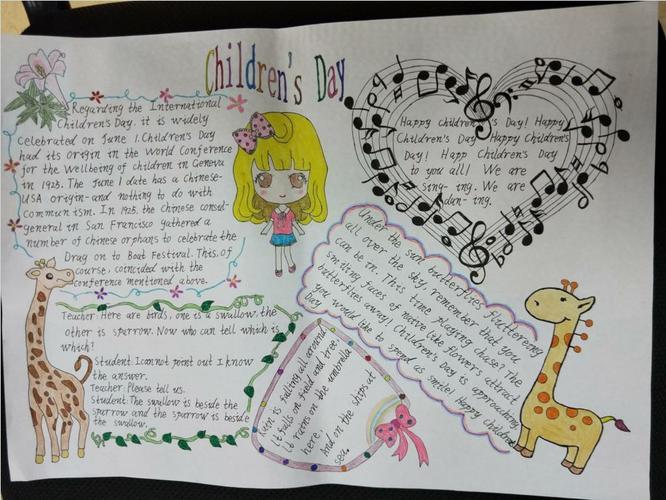 Children's Day
Regarding the International
Children's Day. it is widely
celebrated on June 1. Children's Day
had its origin in the World Conference
for the Wellbeing of children in Geneva
in 1925. The June 1 date has a Chinese-
USA origin-and nothing to do with
Communism. In 1925. the Chinese consul-
general in San Francisco gathered a
number of Chinese orphans to celebrate the
Drag on to Boat Festival. This, of
course, coincided with the
conference mentioned above.
Happy Children's Day! Happy
Children's Day Happy Children's
Day! Happ Children's Day
to you all! We are
sing- ing. We are
dan- ing.
Under the sun butterflies fluttereong
all over the sky, remember that you
can be in. This time playing chase? The
smiling faces of naive like flowers attract
butterflies away! Children's Day is approaching
you would like to spend as smile! Happy Children
Day!
Teacher: Here are birds, one is a swallow. the
other is sparrow. Now who can tell which is
which?
Student: I cannot point out I know
the answer.
Teacher: Please tell us.
Student: The swallow is beside the
sparrow and the sparrow is beside
the swallow.
is falling all around
it falls on field and tree.
it rains on the umbrella
here.
And on the ships at
sea.